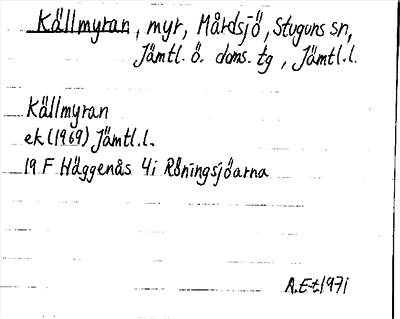 Källmyran, myr, Mårdsjö, Stuguns sn,
Jämtl. ö. doms. tg, Jämtl.l.
Källmyran
ek (1969) Jämtl.l.
19 F Häggenås 4i Röningsjöarna
A.E-t 1971